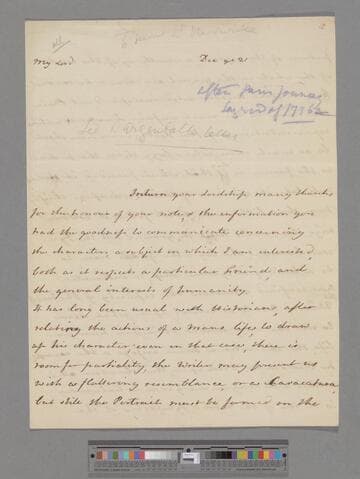 2
My Lord Dec 2
after Paris Journey
end of 1776
See D'argentals letter
I return your Lordship many thanks
for the honour of your note, & the information you
had the goodness to communicate concerning
the character, a subject in which I am interested,
both as it respects a particular friend, and
the general interests of humanity.
It has long been usual with Historians, after
relating the actions of a mans life, to draw
up his character, even in that case, there is
room for partiality, the writer may present us
with a flattering resemblance, or a Caracatura,
but still the Portrait must be formed on the